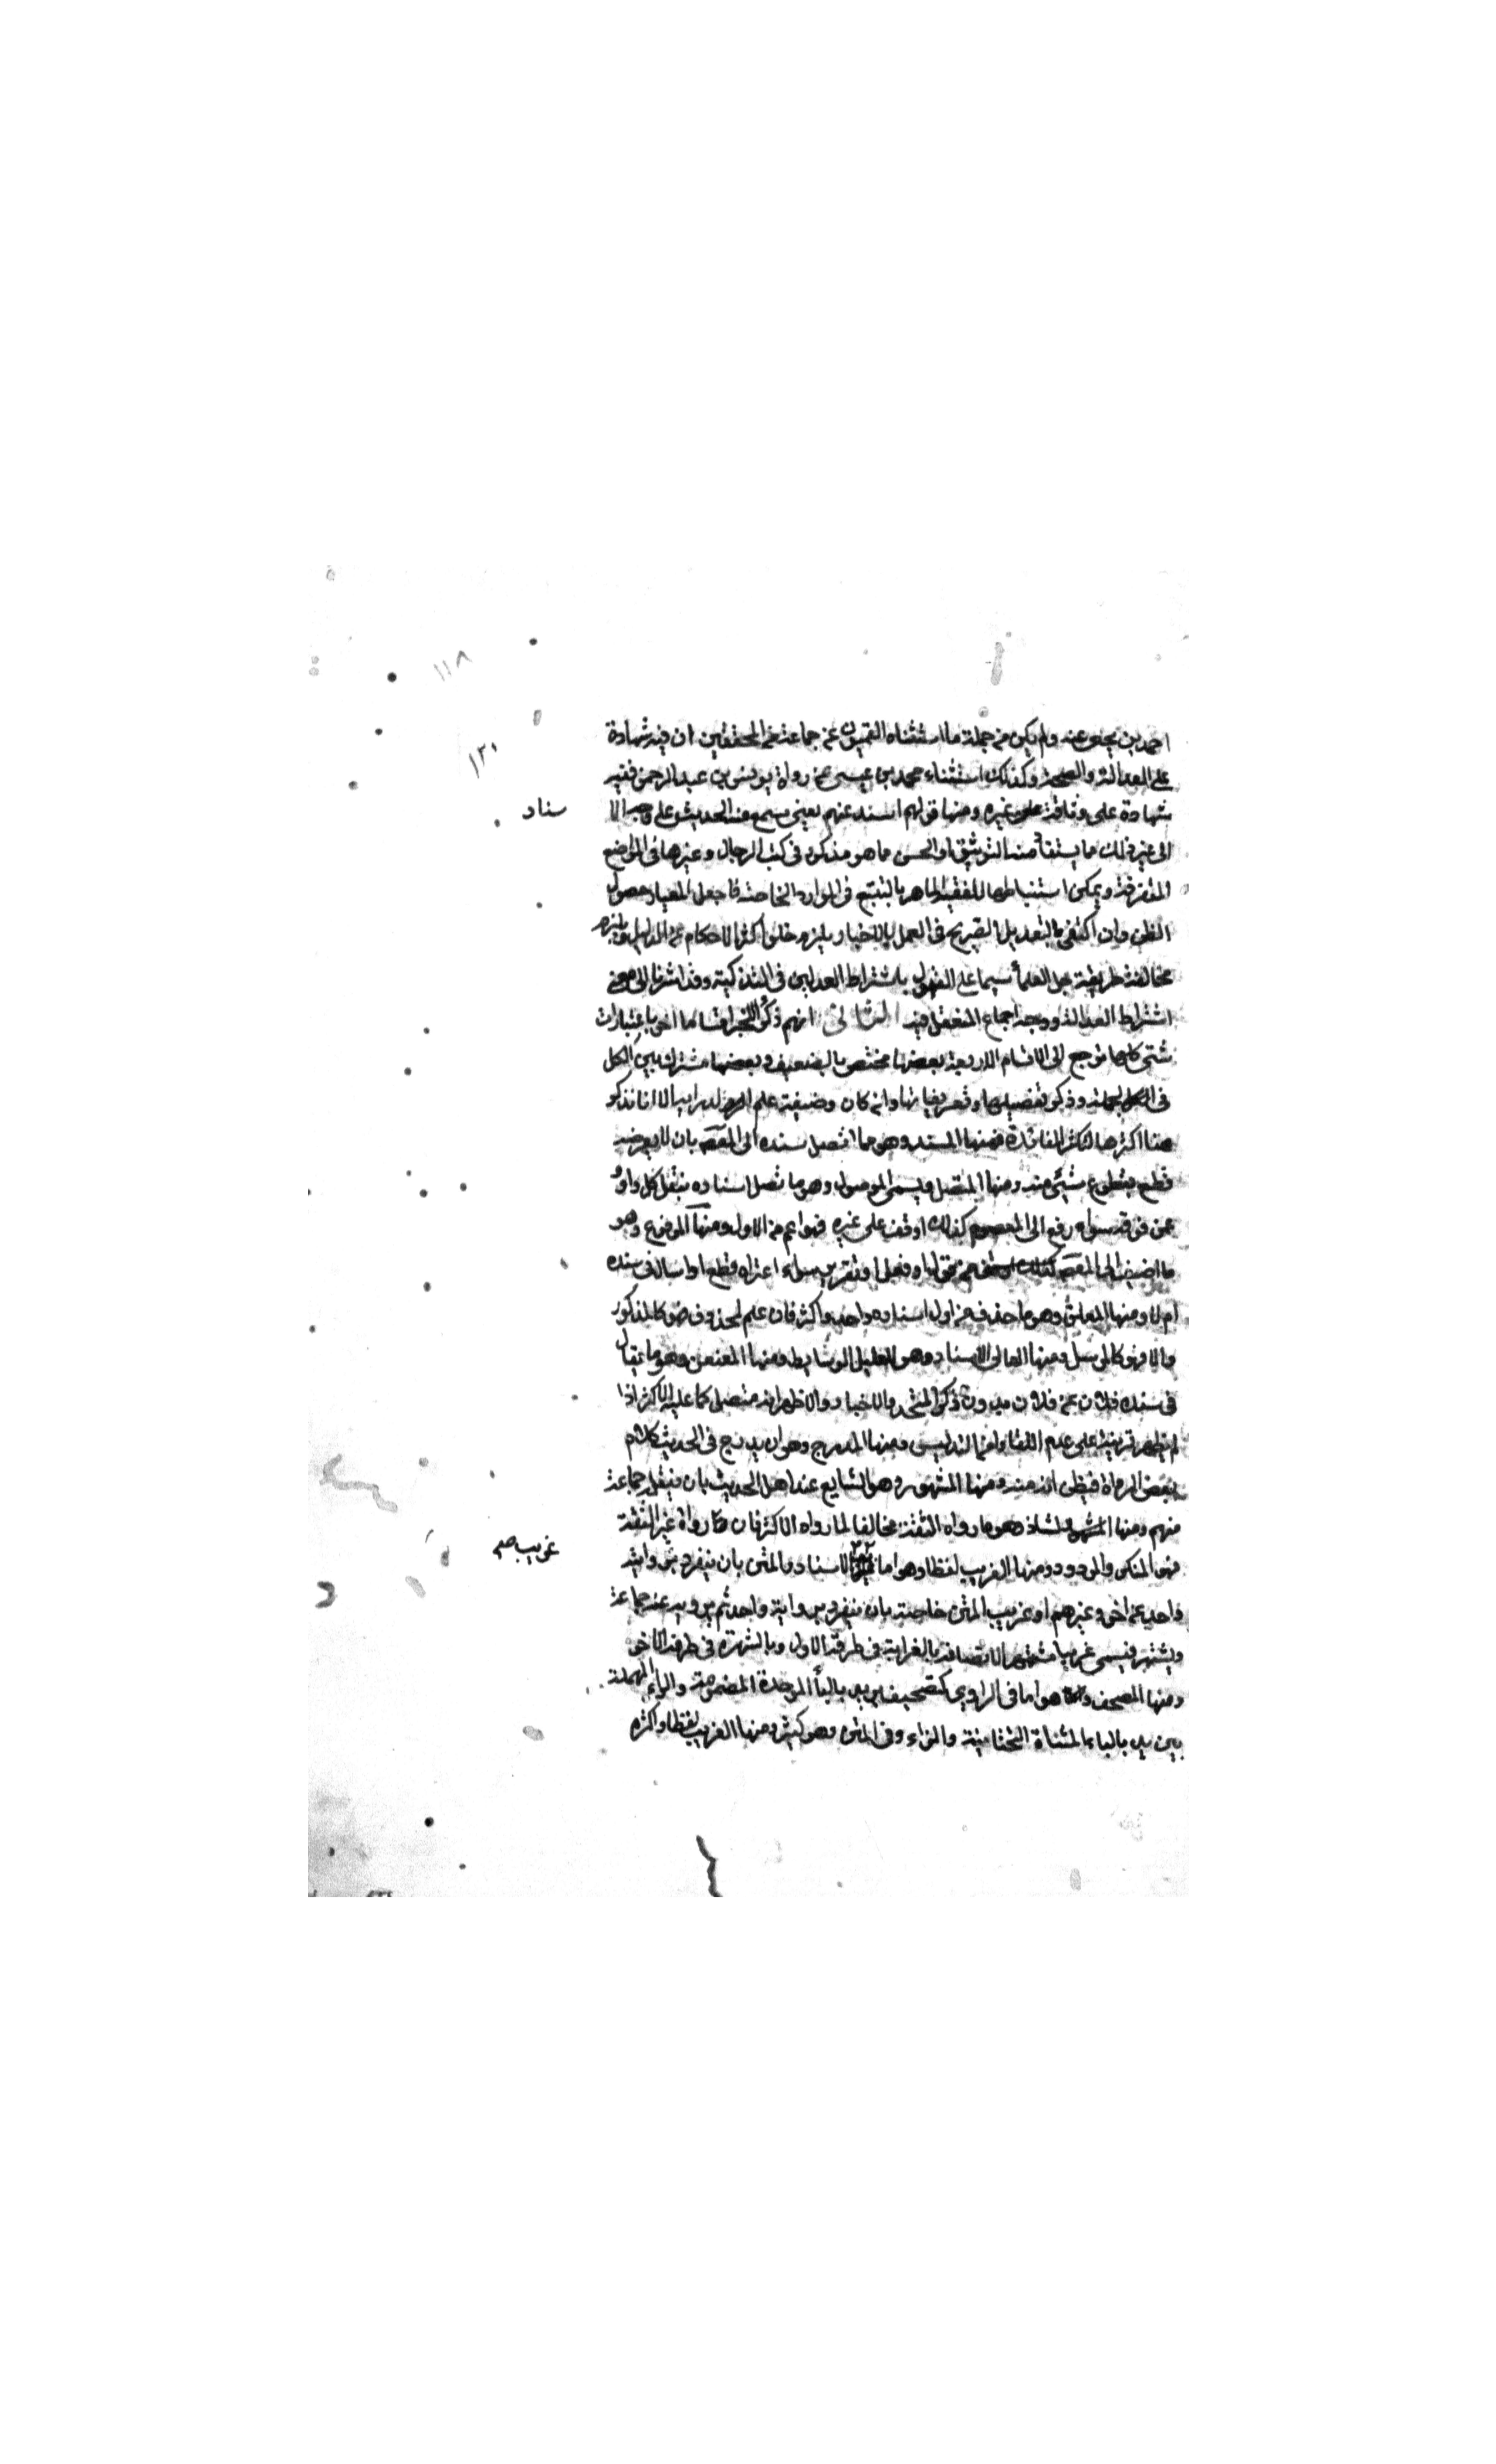 ١١٨
١٢٠
احمد بن يحيى عنه ولم يكن من جملة ما استثناه القميون عن جماعة من المحققين ان فيه شهادة
على العدالة والصحة وكذلك استثناء محمد بن عيسى عن رواة يونس بن عبد الرحمن ففيه
شهادة على وثاقة غيره ومنها قولهم اسند عنهم يعني سمع منه الحديث على وجه الا
سناد
الى غير ذلك ما يستفاد منه التوثيق او الحسن ما هو مذكور في كتب الرجال وغيرها في المواضع
المتفرقة ويمكن استنباطها للفقيه الماهر بالتتبع في الموارد الخاصة فاجعل المعيار حصول
الظن وان اكتفى بالتعديل الصريح في العمل بالاخبار يلزم خلو اكثر الاحكام عن الدليل ويلزم
مخالفة طريقة جل العلماء سيما على القول باشتراط العدلين في التذكية وقد اشرنا الى معنى
اشتراط العدالة ووجه اجماع المنعقد فيه الثاني انهم ذكروا للخبر اقساما اخر باعتبارات
شتى كلها ترجع الى الاقسام الاربعة بعضها مختص بالضعيف وبعضها مشترك بين الكل
في الجملة وذكر تفصيلها وتعريفاتها وان كان وضيفة علم الدراية الا انا نذكر
هنا اكثرها لتكثر الفائدة فمنها المسند وهو ما اتصل سنده الى المعصوم بان لا يعرضه
قطع بقطع شيء منه ومنها المتصل ويسمى الموصول وهو ما تصل اسناده بنقل كل راو
عمن فوقه سواء رفع الى المعصوم كذلك او وقف على غيره فهو اعم من الاول ومنها المرفوع وهو
ما اضيف الى المعصوم من قول او فعل او تقرير سواء اعتراه قطع او ارسال في سنده
ام لا ومنها المعلق وهو ما حذف من اول اسناده واحد واكثر فان علم المحذوف فهو كالمذكور
والا فهو كالمرسل ومنها العالي الاسناد وهو القليل الوسايط ومنها المعنعن وهو ما يقال
في سنده فلان عن فلان من دون ذكر التحديث والاخبار والاظهر انه متصل كما عليه الاكثر اذا
لم يظهر قرينة على عدم اللقاء وامن التدليس ومنها المدرج وهو ان يدرج في الحديث كلام
بعض الرواة فيظن انه منه ومنها المشهور وهو الشايع عند اهل الحديث بان ينقله جماعة
منهم ومنها الشاذ وهو ما رواه الثقة مخالفا لما رواه الاكثر فان كان رواة غير الثقة
فهو المنكر والمردود ومنها الغريب لفظا وهو اما غريب الاسناد والمتن بان ينفرد بروايته
غريب صح
واحد عن اخر وغيرهم او غريب المتن خاصة بان ينفرد برواية واحد ثم يرويه عنه جماعة
ويشتهر فيسمى غريبا مشهورا لاتصافه بالغرابة في طرفه الاول وبالشهرة في طرفه الاخر
ومنها المصحف وهو اما في الراوي كتصحيف بريد بالباء الموحدة المضمومة والراء المهملة
بيزيد بالياء المثناة التحتانية والزاء وفي المتن وهو كثير ومنها الغريب لفظا واكثره